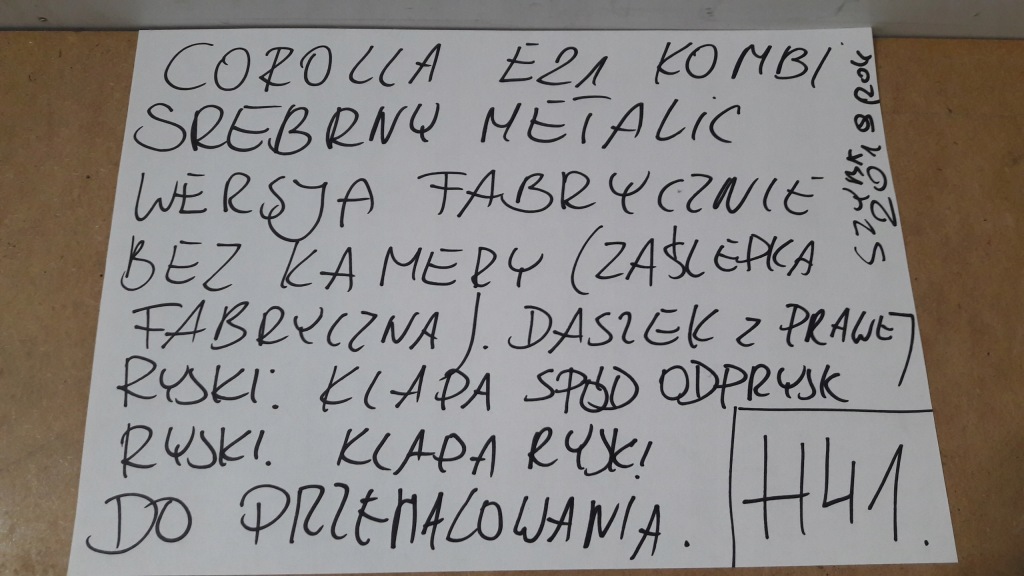 COROLLA E21 KOMBI
SREBRNY METALIC
WERSJA FABRYCZNIE
BEZ KAMERY (ZAŚLEPKA
FABRYCZNA). DASZEK Z PRAWEJ
RYSKI. KLAPA SPÓD ODPRYSK
RYSKI. KLAPA RYSKI
DO PRZEMALOWANIA.
H41.
2018